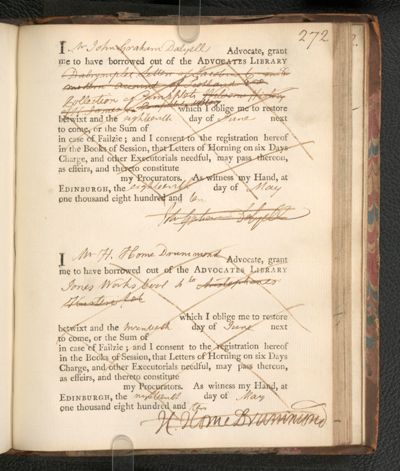 272
I Mr John Graham Dalyell Advocate, grant
me to have borrowed out of the ADVOCATES LIBRARY
Dalrymple's Letter
modern account of
Collection of Pamphlets
which I oblige me to restore
betwixt and the eighteenth day of June next
to come, or the Sum of
in case of Failzie; and I consent to the registration hereof
in the Books of Session, that Letters of Horning on six Days
Charge, and other Executorials needful, may pass thereon,
as effeirs, and thereto constitute
my Procurators. As witness my Hand, at
EDINBURGH, the eighteenth day of May
one thousand eight hundred and
Jn Graham Dalyell
I Mr H. Home Drummond Advocate, grant
me to have borrowed out of the ADVOCATES LIBRARY
Jones Works 4to Aristophanes
which I oblige me to restore
betwixt and the twentieth day of June next
to come, or the Sum of
in case of Failzie; and I consent to the registration hereof
in the Books of Session, that Letters of Horning on six Days
Charge, and other Executorials needful, may pass thereon,
as effeirs, and thereto constitute
my Procurators. As witness my Hand, at
EDINBURGH, the nineteenth day of May
one thousand eight hundred and ten
H Home Drummond